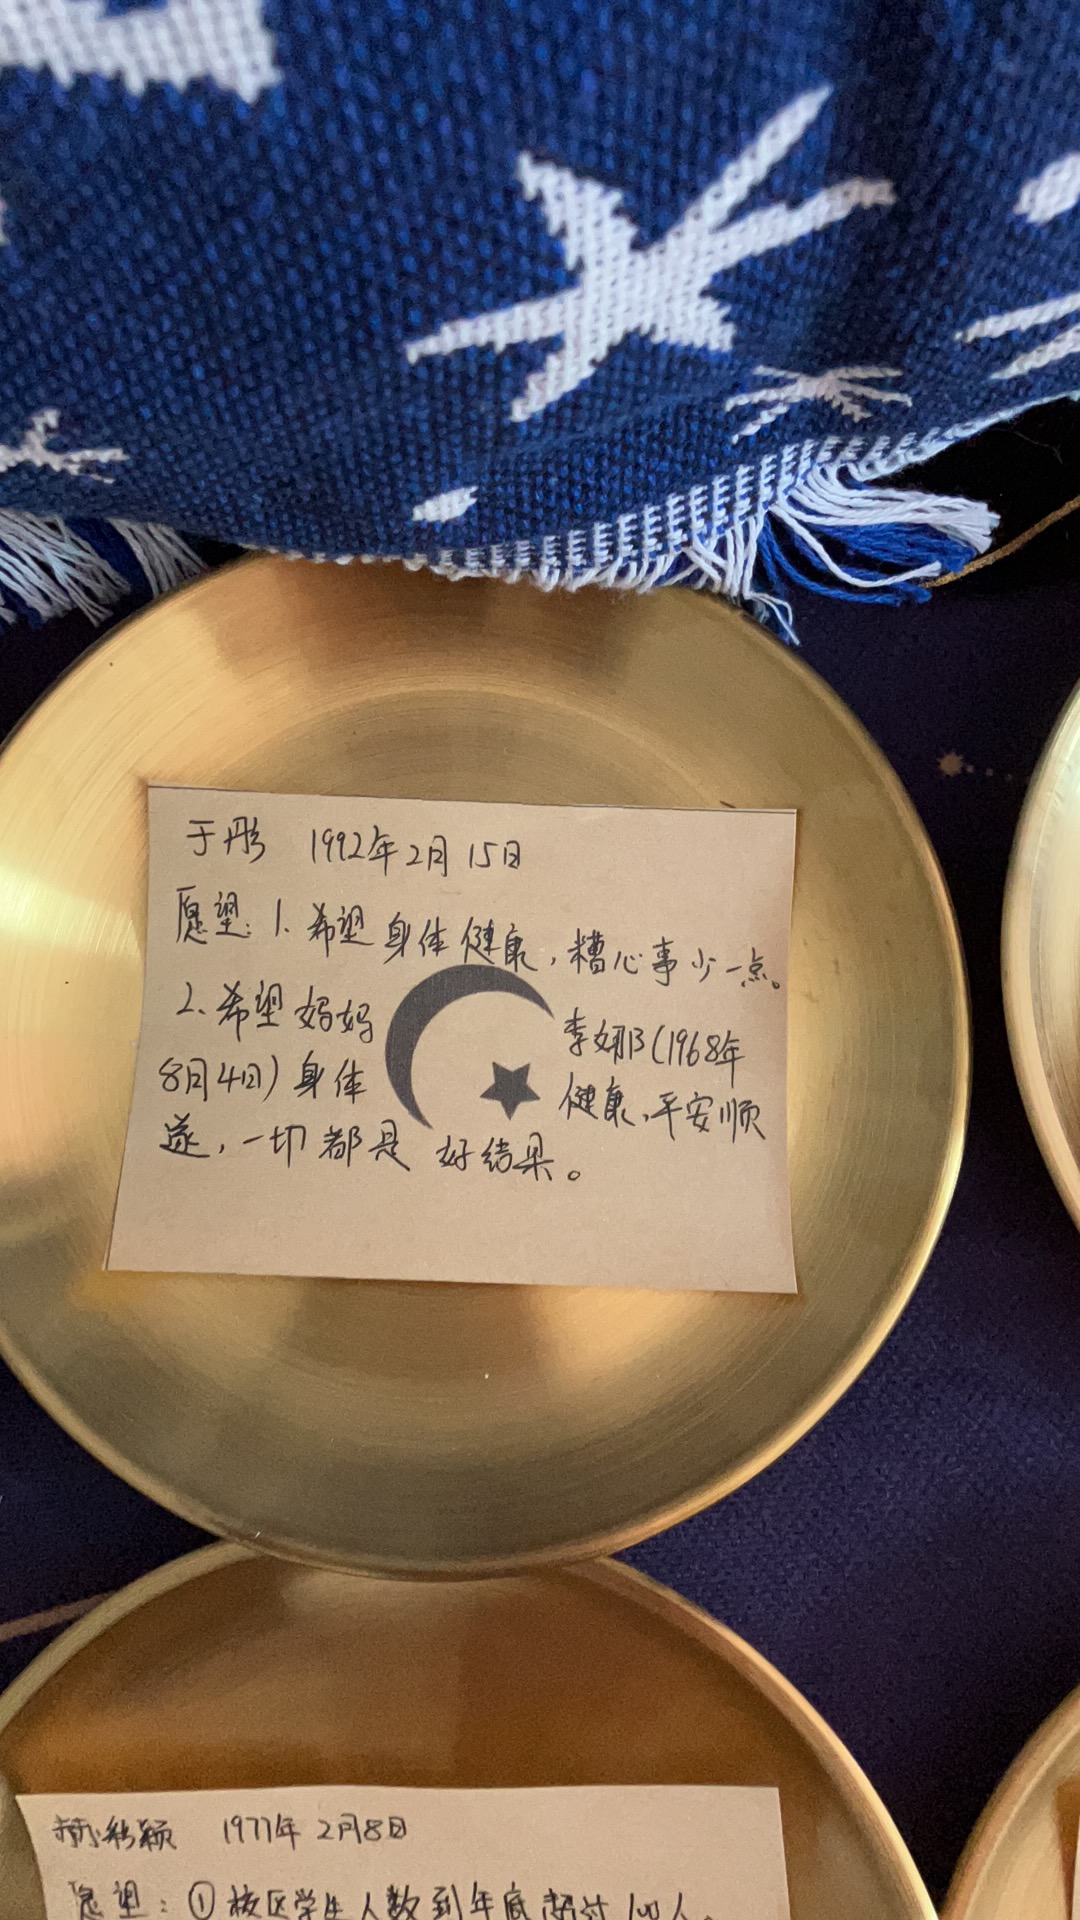 于彤 1992年2月15日
愿望：1. 希望身体健康，糟心事少一点。
2. 希望妈妈 李娜(1968年
8月4日) 身体 健康、平安顺
遂，一切都是 好结果。
1977年 2月8日
愿望：① 校区学生人数到年底超过100人。